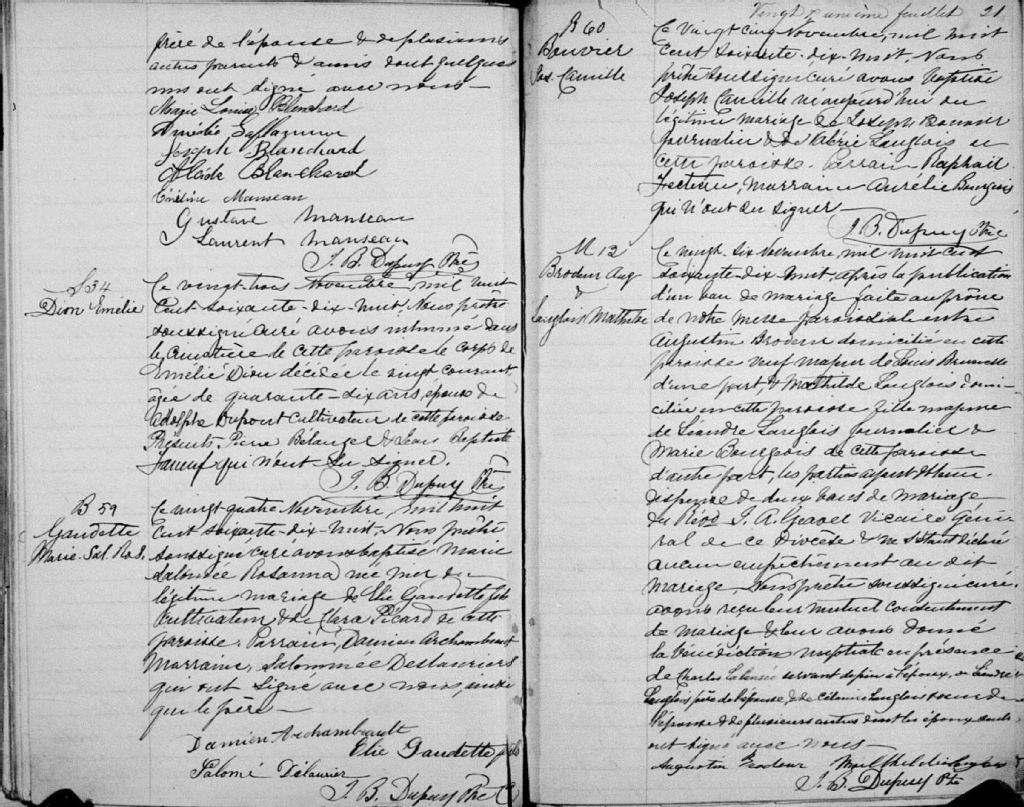 frère de l'épouse & de plusieurs
autres parents & amis dont quelques
uns ont signé avec nous —
Marie Louise Blanchard
Joseph Blanchard
Blanchard
Manseau
Gustave Manseau
Laurent Manseau
J. B. Dupuy Ptre
S 34
Dion Emélie
Ce vingt trois Novembre, mil huit
cent soixante-dix-huit, Nous prêtre
soussigné curé avons inhumé dans
le cimetière de cette paroisse le corps de
Emélie Dion décédée le vingt courant
agée de quarante-dix ans, épouse de
Adolphe Dupont cultivateur de cette paroisse
Présents, Pierre Bélanger & Jean Baptiste
Janeuf qui n'ont su signer.
J. B. Dupuy Ptre
B 59
Gaudette
Marie. Sal. Ros.
Ce vingt quatre Novembre, mil huit
cent soixante-dix-huit, Nous prêtre
soussigné curé avons baptisé Marie
Salomée Rosanna née hier du
légitime mariage de Elie Gaudette fils
cultivateur & de Clara Picard de cette
paroisse. Parrain, Damien Archambault
Marraine, Salommée Deslauriers
qui ont signé avec nous, ainsi
que le père —
Damien Archambault
Elie Gaudette fils
Salomé Délaurier
J. B. Dupuy Ptre
Vingt juillet 21
B 60
Bouvier
Jos. Camille
Ce Vingt cinq Novembre, mil huit
cent soixante-dix-huit, Nous
prêtre soussigné curé avons baptisé
Joseph Camille né aujourd'hui du
légitime mariage de Joseph Bouvier
journalier & de Valérie Langlois de
cette paroisse. Parrain, Raphaël
, Marraine Aurélie Bourgeois
qui n'ont su signer —
J. B. Dupuy Ptre
M 12
Brodeur Aug
&
Langlois Mathilde
Ce vingt-six Novembre, mil huit cent
soixante-dix-huit, après la publication
d'un ban de mariage faite au prône
de notre messe paroissial entre
Augustin Brodeur domicilié en cette
paroisse veuf majeur de Louise
d'une part, & Mathilde Langlois domi-
ciliée en cette paroisse fille majeure
de Léandre Langlois journalier &
Marie Bourgeois de cette paroisse
d'autre part, les parties ayant obtenu
dispense de deux bans de mariage
du Révd J. A. Gravel Vicaire Géné-
ral de ce Diocèse & ne s'étant déclaré
aucun empêchement au dit
mariage, Nous prêtre soussigné curé
avons reçu leur mutuel consentement
de mariage & leur avons donné
la bénédiction nuptiale en présence
de Charles servant de père à l'époux, de Léandre
Langlois père de l'épouse, & de Célanire Langlois soeur de
l'épouse & de plusieurs autres dont les époux seuls
ont signé avec nous —
Augustin Brodeur
J. B. Dupuy Ptre